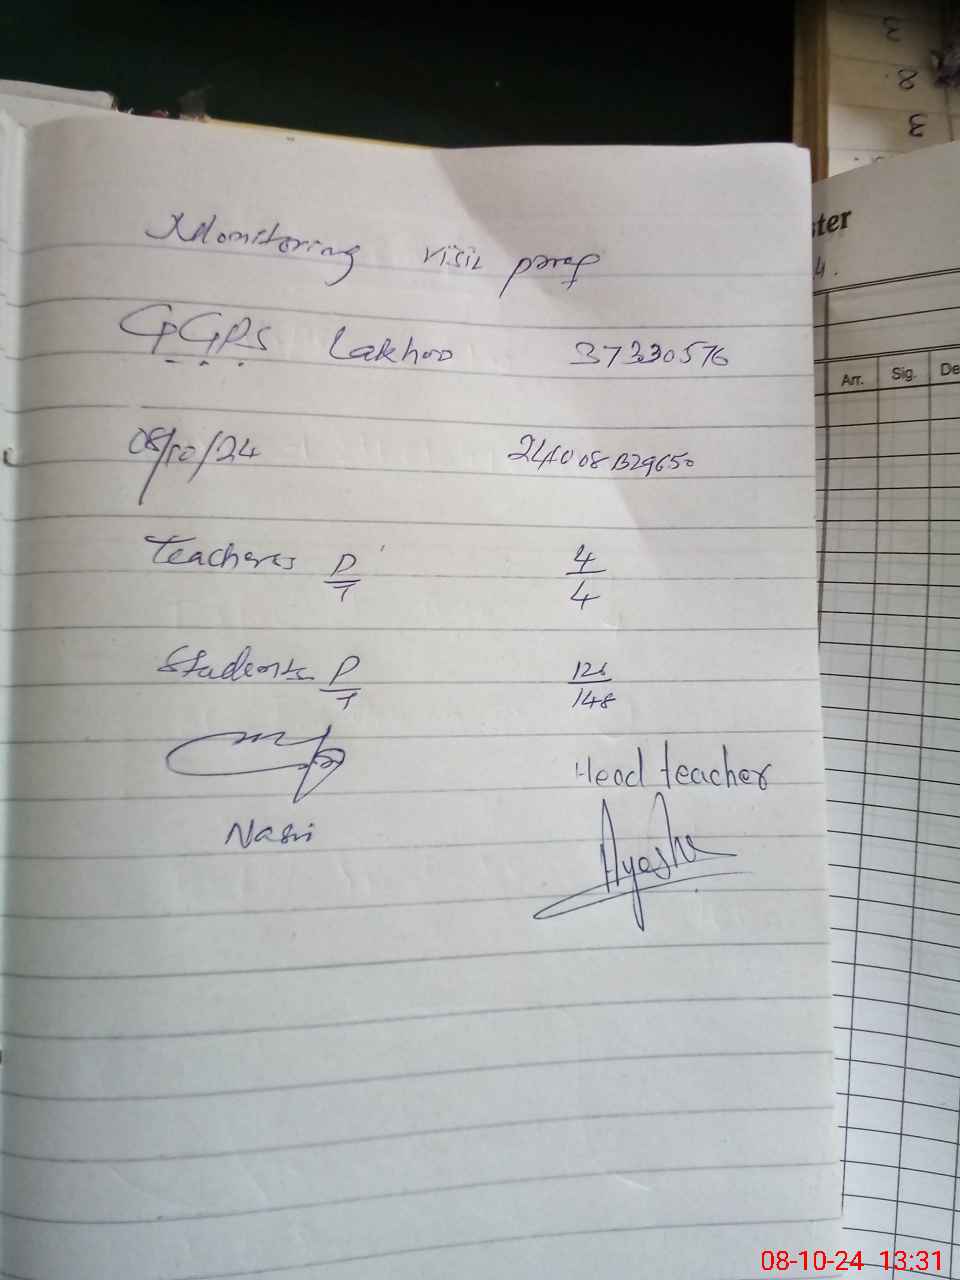 Monitoring visit proof
G.G.P.S Lakhoo 37330576
08/10/24 241008B29650
Teachers P/T 4/4
Students P/T 126/148
Head teacher
Nasir
Ayesha
ster
4.
Arr. Sig. De
3
8
3
08-10-24 13:31